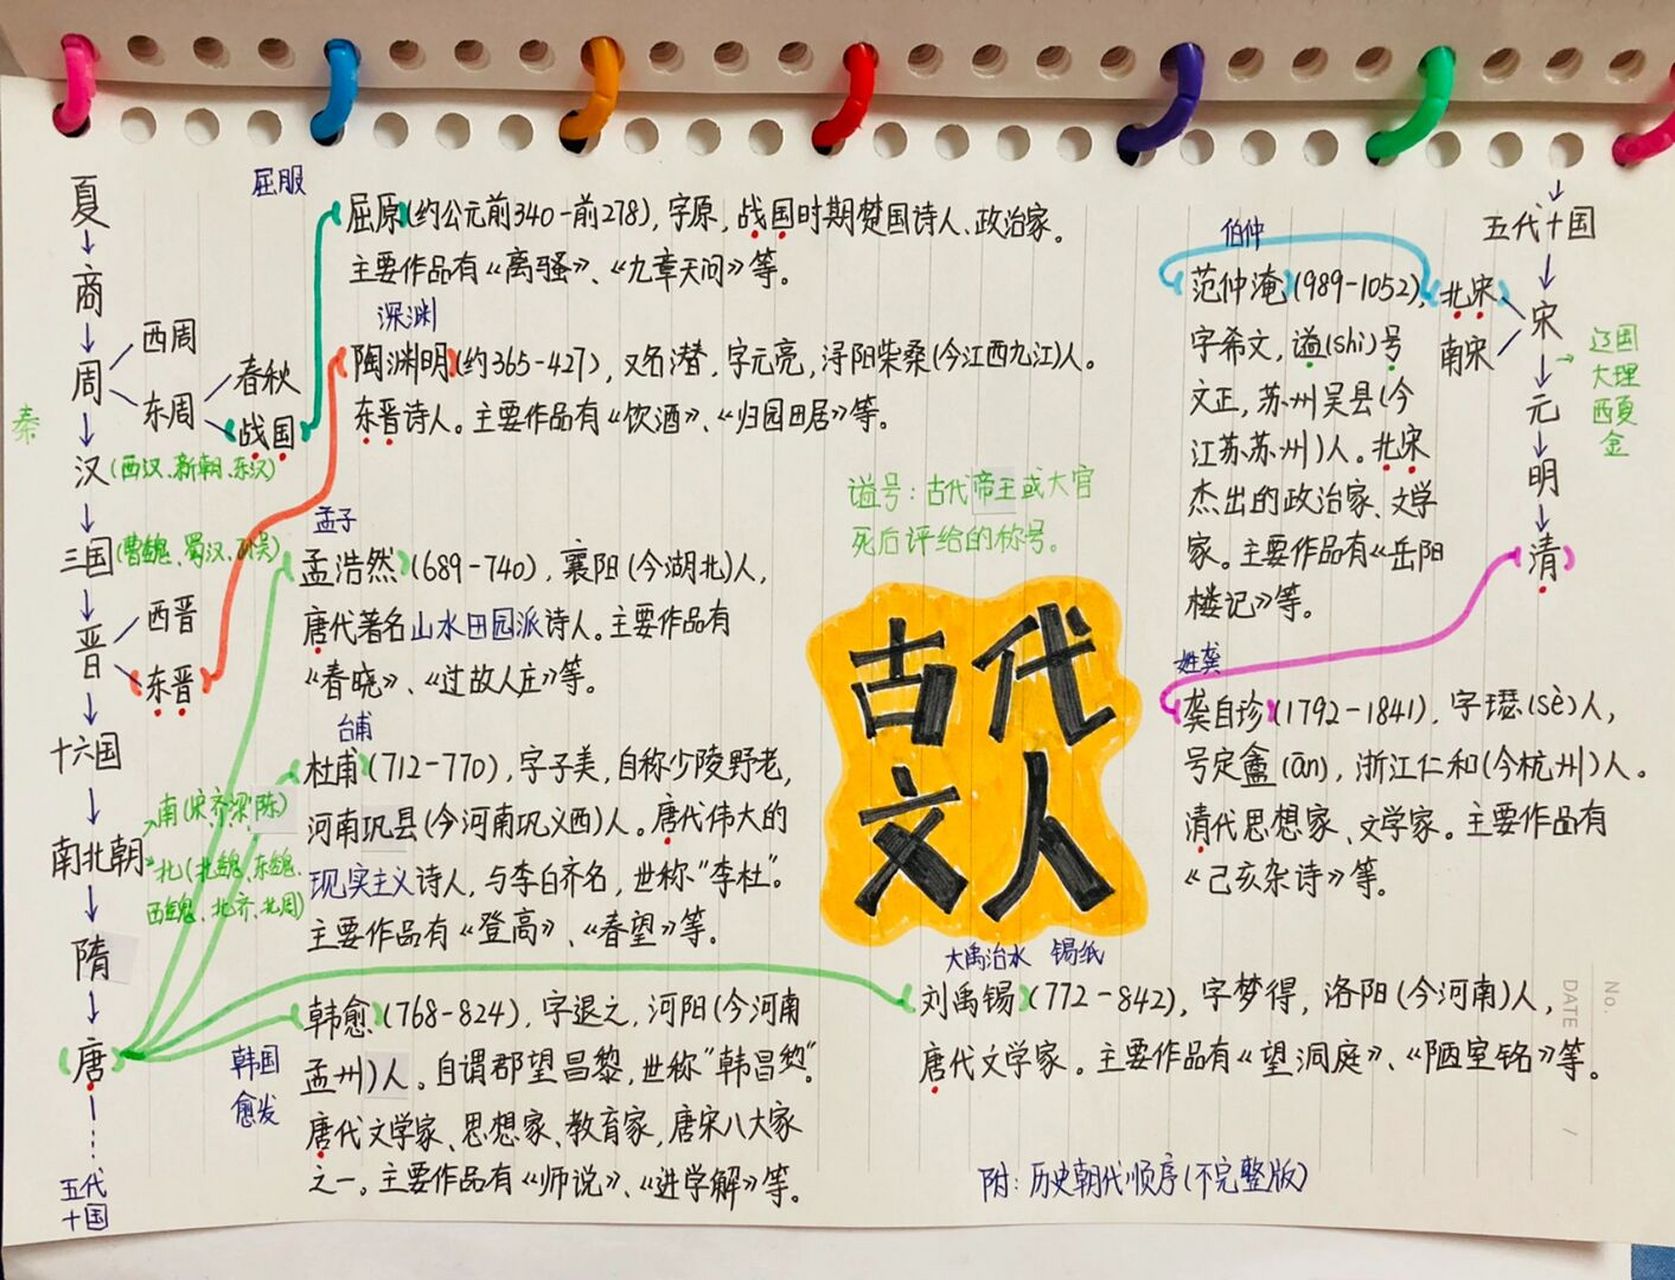 夏
商
周
西周
东周
春秋
战国
秦
汉(西汉、新朝、东汉)
三国(曹魏、蜀汉、孙吴)
晋
西晋
东晋
十六国
南北朝
南(宋齐梁陈)
北(北魏、东魏、
西魏、北齐、北周)
隋
唐
五代
十国
屈服
屈原(约公元前340-前278),字原,战国时期楚国诗人、政治家。
主要作品有《离骚》、《九章天问》等。
深渊
陶渊明(约365-427),又名潜,字元亮,浔阳柴桑(今江西九江)人。
东晋诗人。主要作品有《饮酒》、《归园田居》等。
孟子
孟浩然(689-740),襄阳(今湖北)人,
唐代著名山水田园派诗人。主要作品有
《春晓》、《过故人庄》等。
台甫
杜甫(712-770),字子美,自称少陵野老,
河南巩县(今河南巩义西)人。唐代伟大的
现实主义诗人,与李白齐名,世称"李杜"。
主要作品有《登高》、《春望》等。
韩国
愈发
韩愈(768-824),字退之,河阳(今河南
孟州)人。自谓郡望昌黎,世称"韩昌黎"。
唐代文学家、思想家、教育家,唐宋八大家
之一。主要作品有《师说》、《进学解》等。
谥号:古代帝王或大官
死后评给的称号。
古代
文人
大禹治水 锡纸
刘禹锡(772-842),字梦得,洛阳(今河南)人,
唐代文学家。主要作品有《望洞庭》、《陋室铭》等。
附:历史朝代顺序(不完整版)
伯仲
范仲淹(989-1052),
字希文,谥(shì)号
文正,苏州吴县(今
江苏苏州)人。北宋
杰出的政治家、文学
家。主要作品有《岳阳
楼记》等。
姓龚
龚自珍(1792-1841),字璱(sè)人,
号定盦(ān),浙江仁和(今杭州)人。
清代思想家、文学家。主要作品有
《己亥杂诗》等。
五代十国
宋
北宋
南宋
辽国
大理
西夏
金
元
明
清
No.
DATE